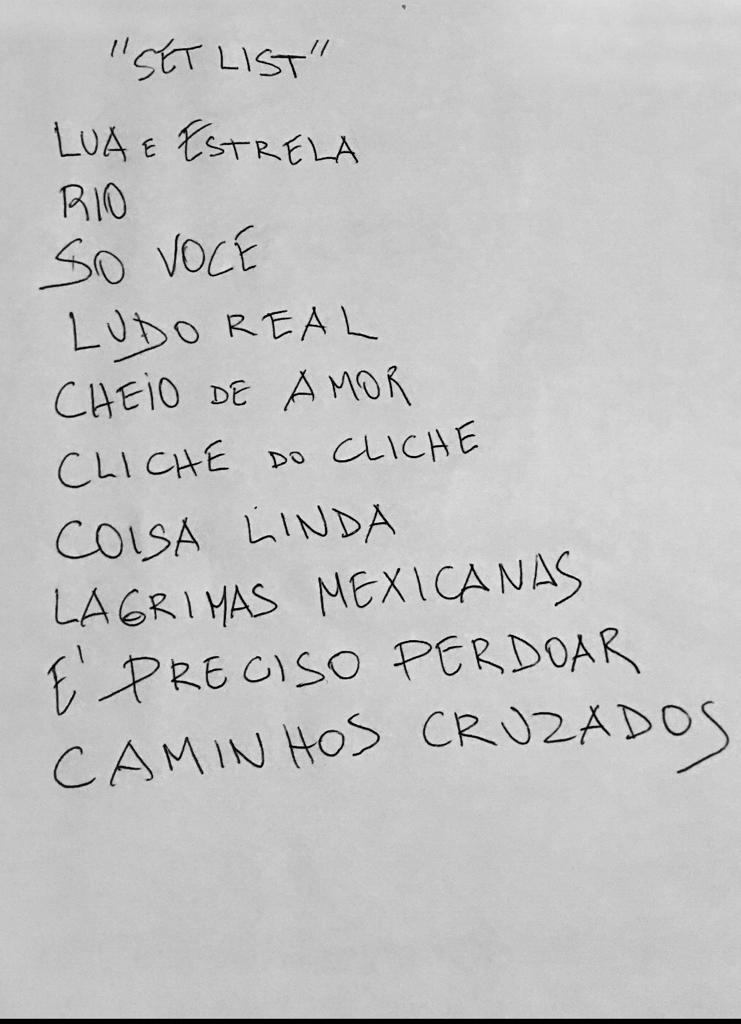 "SET LIST"
LUA E ESTRELA
RIO
SO VOCE
LUDO REAL
CHEIO DE AMOR
CLICHE DO CLICHE
COISA LINDA
LAGRIMAS MEXICANAS
E' PRECISO PERDOAR
CAMINHOS CRUZADOS